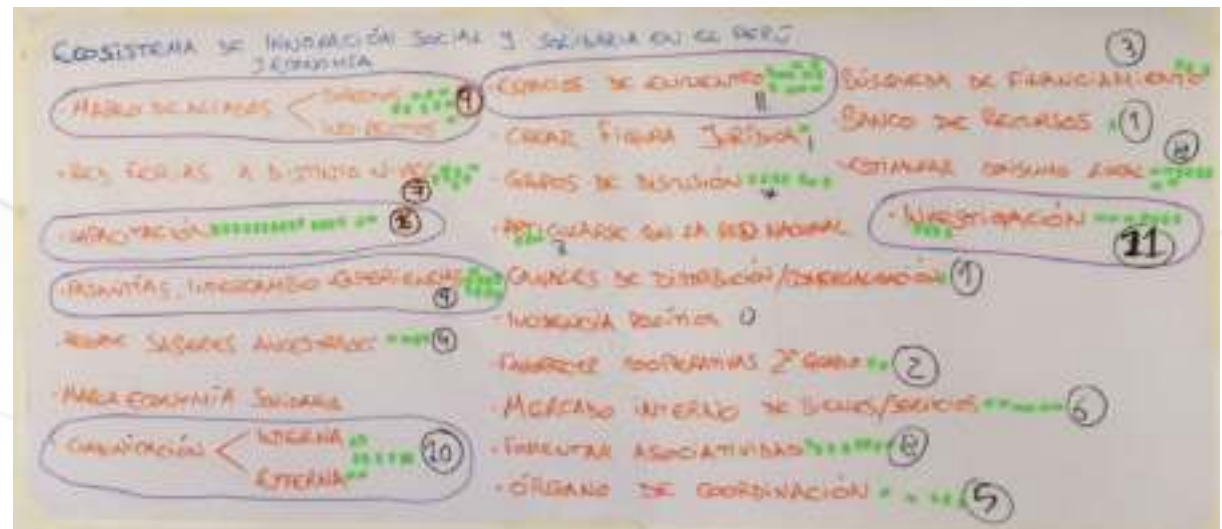 ECOSISTEMA DE INNOVACIÓN SOCIAL Y SOLIDARIA EN EL PERÚ
ECONOMÍA
· MAPEO DE ALIADOS < DIRECTOS
INDIRECTOS 9
· FERIAS A DISTINTO NIVEL 7
· CAPACITACIÓN
· PASANTÍAS, INTERCAMBIO EXPERIENCIAS 9
SABERES ANCESTRALES
· MARCA ECONOMÍA SOLIDARIA
· COMUNICACIÓN < INTERNA
EXTERNA 10
· ESPACIOS DE ENCUENTRO 11
· CREAR FIGURA JURÍDICA 1
· GRUPOS DE DISCUSIÓN 7
· ARTICULARSE CON LA RED NACIONAL
· CANALES DE DISTRIBUCIÓN/ 1
· INCIDENCIA POLÍTICA 0
· FAVORECER COOPERATIVAS 2º GRADO 2
· MERCADO INTERNO DE BIENES/SERVICIOS 6
· FOMENTAR ASOCIATIVIDAD 8
· ÓRGANO DE COORDINACIÓN 5
BÚSQUEDA DE FINANCIAMIENTO 3
BANCO DE RECURSOS 1
· ESTIMULAR CONSUMO LOCAL 8
· INVESTIGACIÓN 11